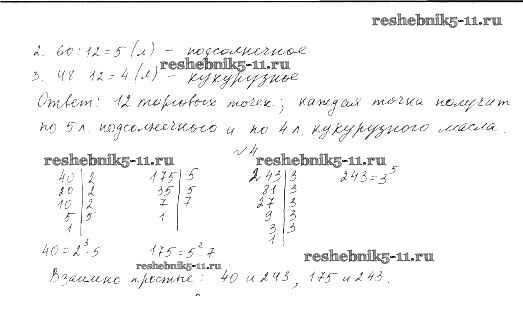 reshebnik5-11.ru
2. 60:12=5 (л) – подсолнечное
reshebnik5-11.ru
3. 48 12=4 (л) – кукурузное
Ответ: 12 торговых точек; каждая точка получит
по 5 л. подсолнечного и по 4 л. кукурузного масла.
№4
reshebnik5-11.ru reshebnik5-11.ru
40|2 175|5 243|3 243=3⁵
20|2 35|5 81|3
10|2 7|7 27|3
5|5 1 9|3
1 3|3
1
40=2³·5 175=5²·7
reshebnik5-11.ru reshebnik5-11.ru
Взаимно простые: 40 и 243, 175 и 243.